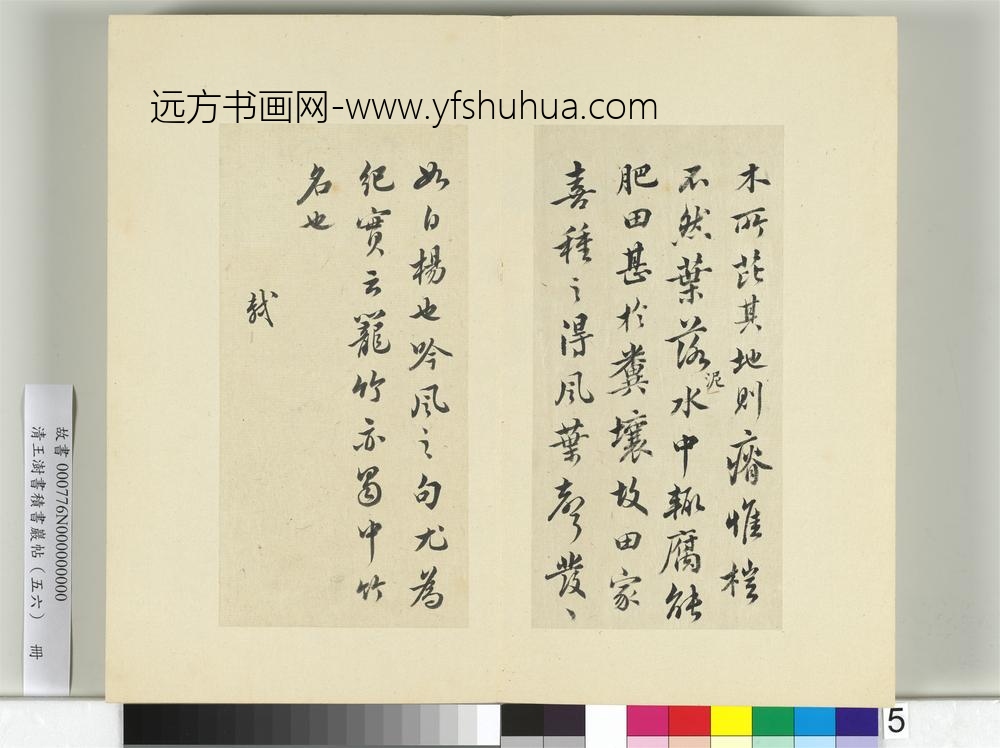 远方书画网-www.yfshuhua.com
木所芘其地則瘠惟榿
不然葉落泥水中輒腐能
肥田甚於糞壤故田家
喜種之得風葉聲發〻
如白楊也吟風之句尤為
紀實云籠竹亦蜀中竹
名也
軾
故書 000776N000000000
清王澍書積書巖帖(五六) 冊
5